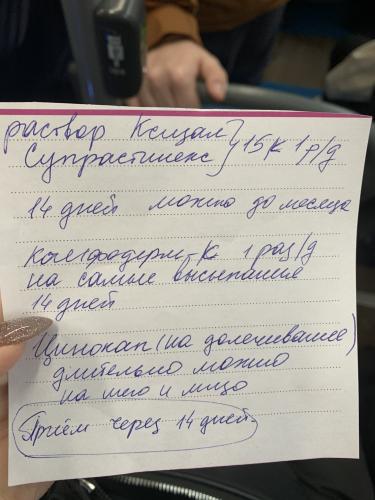 раствор Ксизал } 15к 1р/д
Супрастинекс
14 дней можно до месяца
Комфодерм-К 1 раз/д
на самые высыпания
14 дней
Цинокап (на долечивание)
длительно можно
на шею и лицо
Приём через 14 дней.